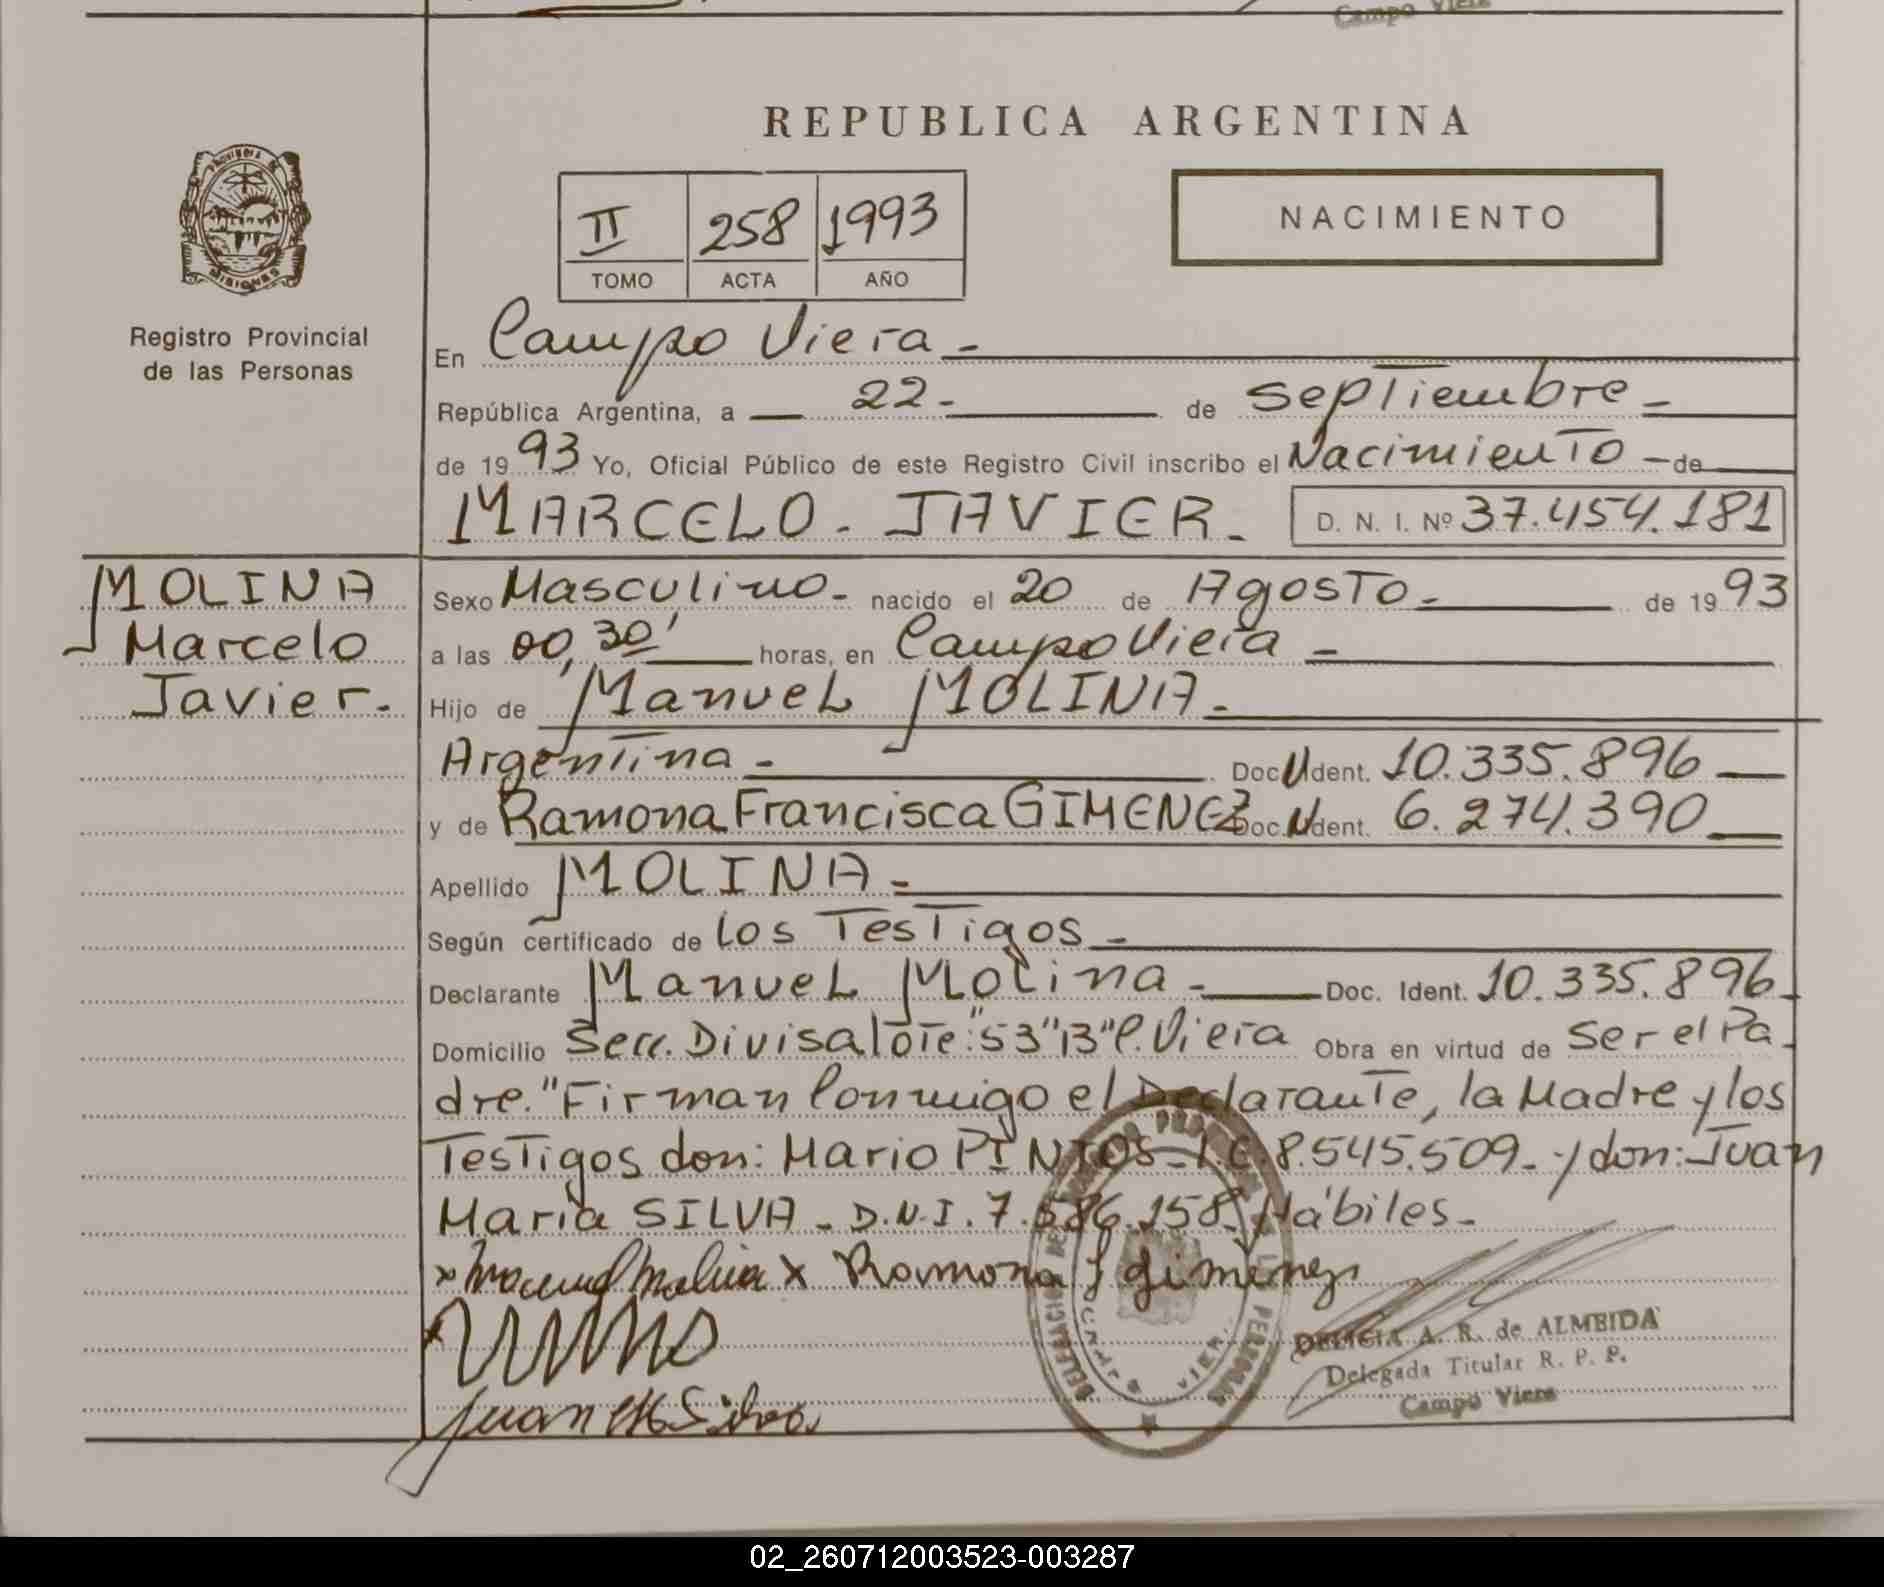 Campo Viera
REPUBLICA ARGENTINA
PROVINCIA DE
MISIONES
II 258 1993
TOMO ACTA AÑO
NACIMIENTO
Registro Provincial
de las Personas
En Campo Viera -
República Argentina, a 22- de septiembre -
de 1993 Yo, Oficial Público de este Registro Civil inscribo el Nacimiento - de
MARCELO - JAVIER - D. N. I. Nº 37.454.181
MOLINA
Marcelo
Javier.-
Sexo Masculino - nacido el 20 de Agosto - de 1993
a las 00,30' horas, en Campo Viera -
Hijo de Manuel MOLINA -
Argentina - Doc. U Ident. 10.335.896
y de Ramona Francisca GIMENEZ Doc. U Ident. 6.274.390
Apellido MOLINA -
Según certificado de los Testigos -
Declarante Manuel Molina - Doc. Ident. 10.335.896
Domicilio Secc. Divisa lote: "53" 13" C. Viera Obra en virtud de ser el Pa-
dre. "Firman Conmigo el Declarante, la Madre y los
Testigos don: Mario PINTOS - L.E. 8.545.509 - y don: Juan
Maria SILVA - D.N.I. 7.586.158 - Hábiles -
x Manuel Molina x Ramona F gimenez
DELICIA A. R. de ALMEIDA
Delegada Titular R. P. P.
Campo Viera
Juan M Silva
02_260712003523-003287